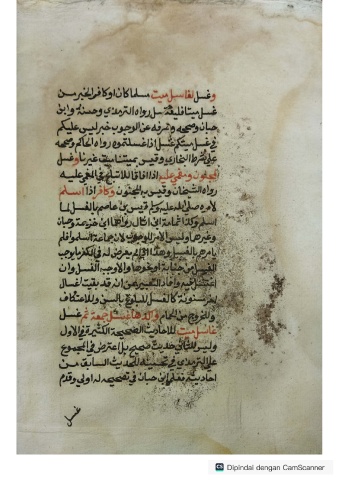 وغسل لغاسل ميت مسلما كان او كافرا لخبر من
غسل ميتا فليغتسل رواه الترمذي وحسنه وابن
حبان وصححه وصرفه عن الوجوب خبر ليس عليكم
في غسل ميتكم غسل اذا غسلتموه رواه الحاكم وصححه
على شرط البخاري وقيس بميتنا ميت غيرنا وغسل
لمجنون ومغمى عليه اذا افاقا للاتباع في المغمى عليه
رواه الشيخان وقيس به المجنون وكافر اذا اسلم
لامره صلى الله عليه وسلم قيس بن عاصم بالغسل لما
اسلم وكذا ثمامة بن اثال رواهما ابن خزيمة وحبان
وغيرهما وليس الامر للوجوب لان جماعة اسلموا فلم
يامرهم بالغسل وهذا اذا لم يعرض له في الكفر ما يوجب
الغسل من جنابة او نحوها والا وجب الغسل وان
اغتسل فيه وافاد التعبير بمن انه قد بقيت اغسال
اخر مسنونة كالغسل للبلوغ بالسن وللاعتكاف
وللخروج من الحمام واكدها غسل جمعة ثم غسل
غاسل ميت للاحاديث الصحيحة الكثيرة في الاول
وليس للثاني حديث صحيح بل اعترض في المجموع
على الترمذي في تحسينه للحديث السابق من
احاديثه فعلى ابن حبان في تصحيحه له اولى وقدم
غسل
Dipindai dengan CamScanner